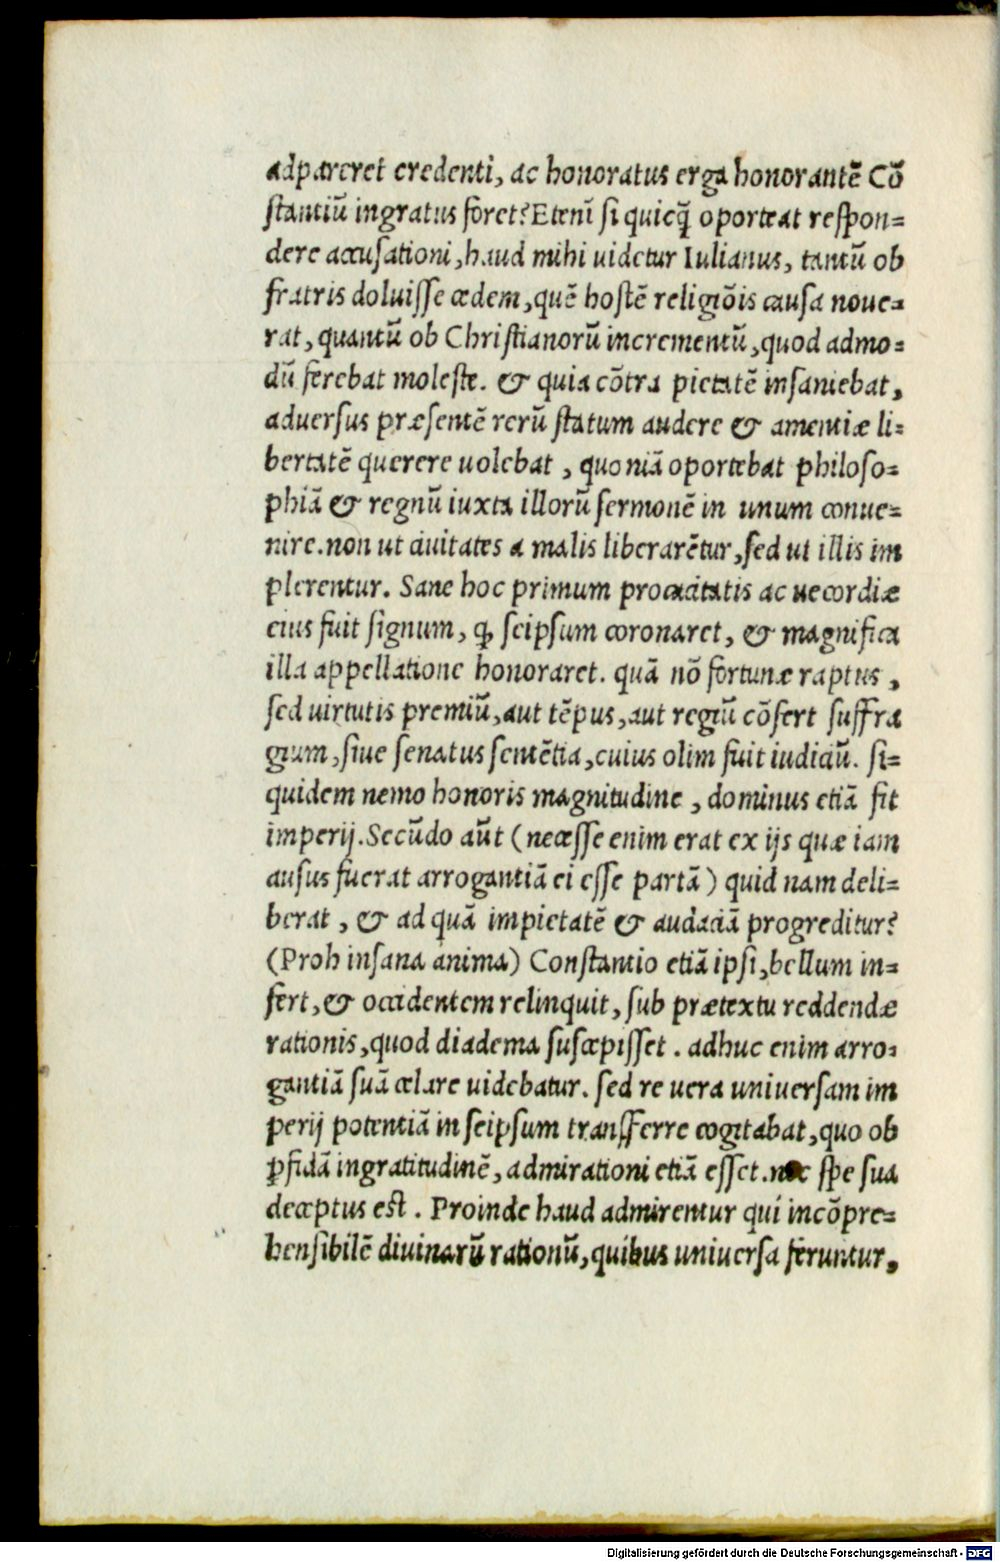 adpareret credenti, ac honoratus erga honorantē Cō
ſtantiū ingratus foret? Etenī ſi quicq̄ oporteat reſpon=
dere accuſationi, haud mihi uidetur Iulianus, tantū ob
fratris doluiſſe cædem, quē hoſtē religiōis cauſa noue=
rat, quantū ob Chriſtianorū incrementū, quod admo=
dū ferebat moleſte. & quia cōtra pietatē inſaniebat,
aduerſus præſentē rerū ſtatum audere & amentiæ li=
bertatē querere uolebat, quoniā oportebat philoſo=
phiā & regnū iuxta illorū ſermonē in unum conue=
nire. non ut ciuitates a malis liberarētur, ſed ut illis im
plerentur. Sane hoc primum procacitatis ac uecordiæ
eius fuit ſignum, ꝙ ſeipſum coronaret, & magnifica
illa appellatione honoraret. quā nō fortunæ raptus,
ſed uirtutis premiū, aut tēpus, aut regiū cōfert ſuffra
gium, ſiue ſenatus ſentētia, cuius olim fuit iudiciū. ſi=
quidem nemo honoris magnitudine, dominus etiā fit
imperij. Secūdo aūt (neceſſe enim erat ex ijs quæ iam
auſus fuerat arrogantiā ei eſſe partā) quid nam deli=
berat, & ad quā impietatē & audaciā progreditur?
(Proh inſana anima) Conſtantio etiā ipſi, bellum in=
fert, & occidentem relinquit, ſub prætextu reddendæ
rationis, quod diadema ſuſcepiſſet. adhuc enim arro=
gantiā ſuā celare uidebatur. ſed re uera uniuerſam im
perij potentiā in ſeipſum tranſferre cogitabat, quo ob
ꝑfidā ingratitudinē, admirationi etiā eſſet. nec ſpe ſua
deceptus eſt. Proinde haud admirentur qui incōpre=
henſibilē diuinarū rationū, quibus uniuerſa feruntur,
Digitalisierung gefördert durch die Deutsche Forschungsgemeinschaft - DFG